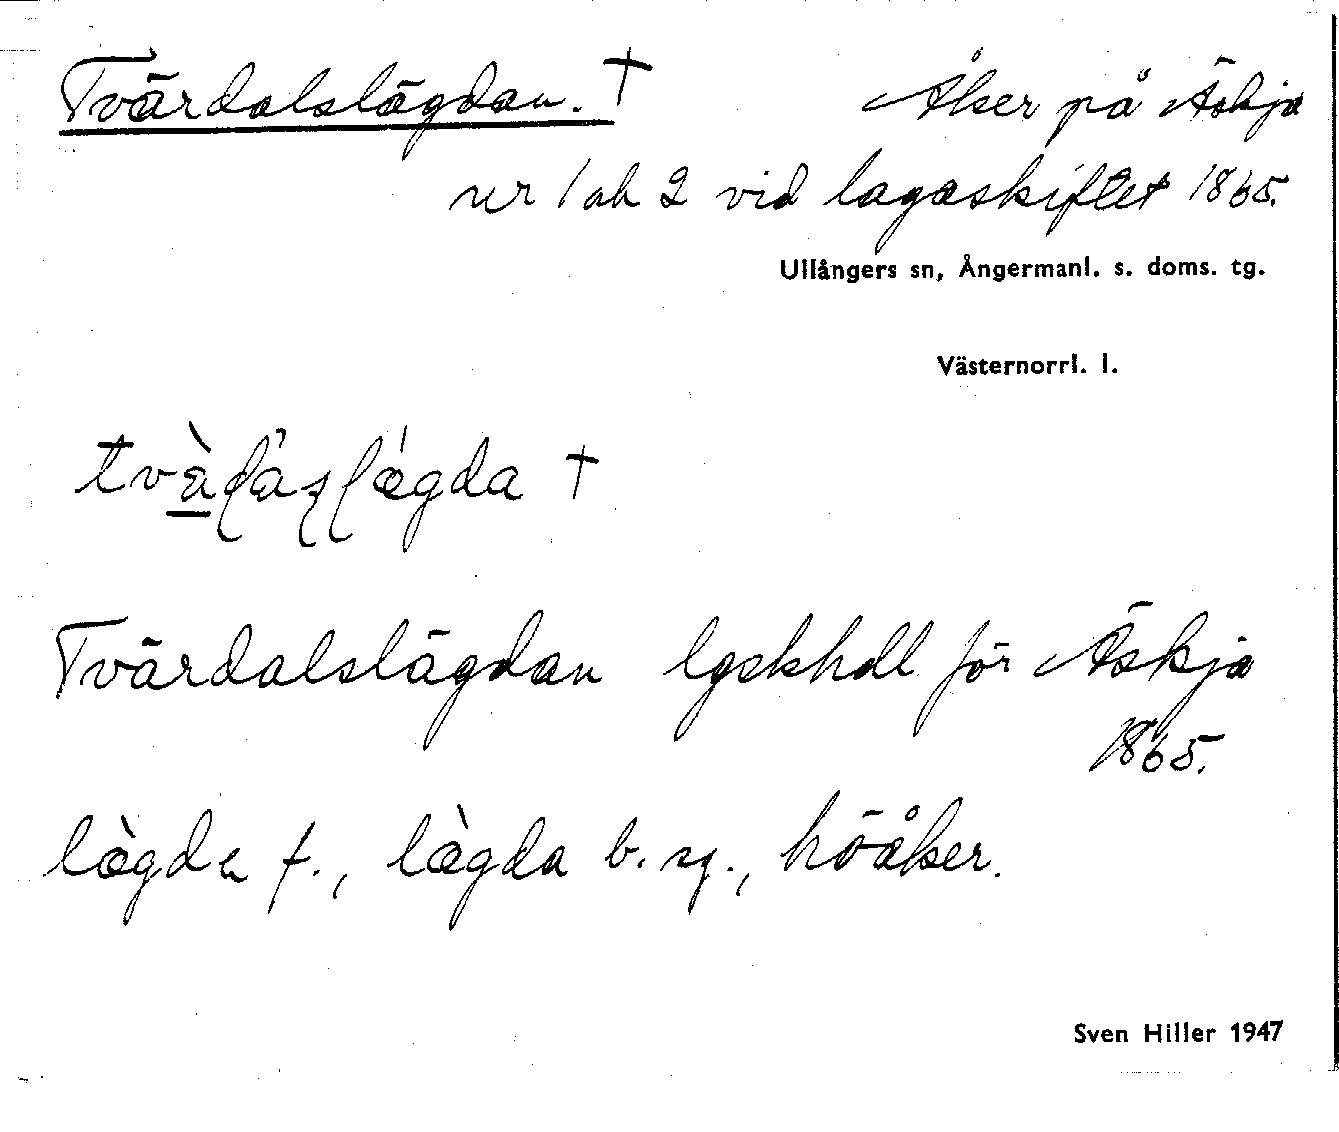 Tvärdalslägdan. †
Åker på Äskja
nr 1 ok 2 vid lagaskiftet 1865.
Ullångers sn, Ångermanl. s. doms. tg.
Västernorrl. l.
†
Tvärdalslägdan lgskhdl för Äskja
1865.
lægde f., lægda b. sg., höåker.
Sven Hiller 1947